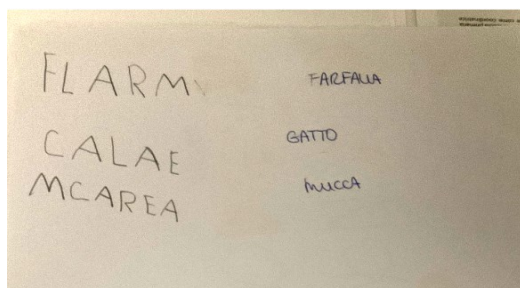 FLARM FARFALLA
CALAE GATTO
MCAREA MUCCA